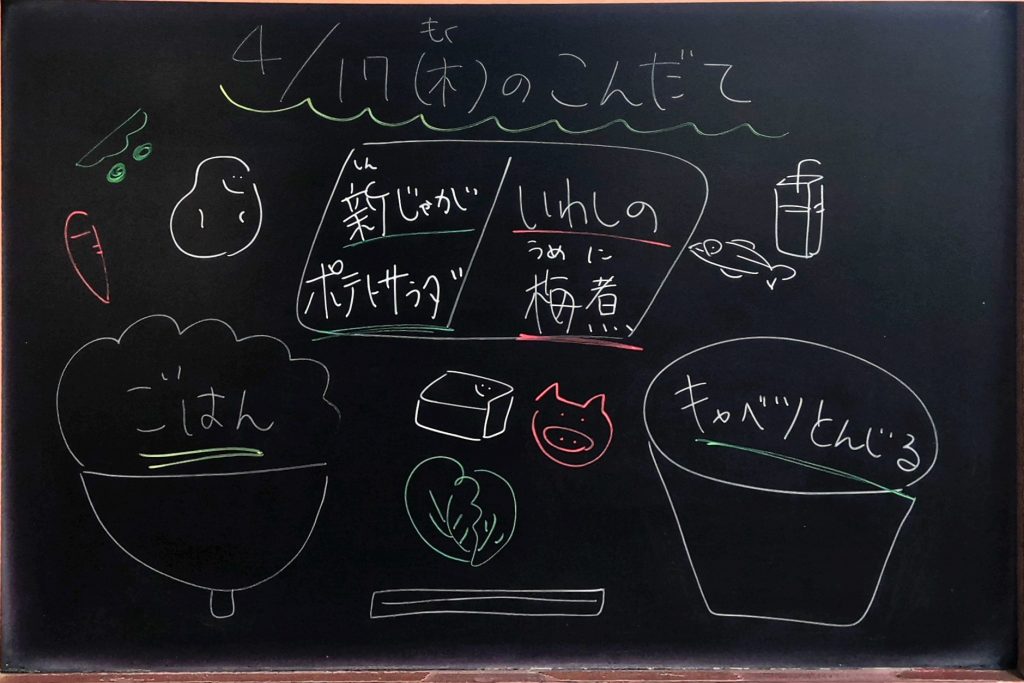 4/17(木)のこんだて
もく
しん
新じゃがじ
ポテトサラダ
いわしの
うめに
梅煮
ごはん
キャベツとんじる